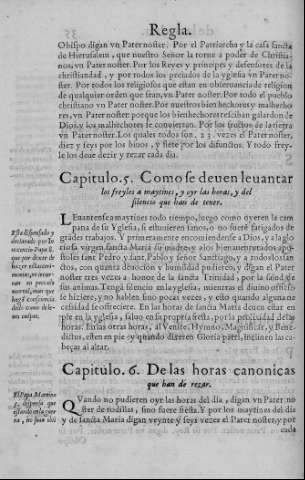 Regla.
Obispo digan vn Pater noster. Por el Patriarcha y la casa sancta
de Hierusalem, que nuestro Señor la torne a poder de Christia-
nos, vn Pater noster. Por los Reyes y principes y defensores de la
christiandad, y por todos los preciados de la yglesia vn Pater no-
ster. Por todos los religiosos que estan en obseruancia de religion
de qualquier orden que sean, vn Pater noster. Por todo el pueblo
christiano vn Pater noster. Por nuestros bien hechores y malhecho-
res, vn Pater noster porque los bienhechores reciban galardon de
Dios, y los malhechores se conuiertan. Por los fructos de la tierra
vn Pater noster. Los quales todos son. 23. vezes el Pater noster,
diez y seys por los biuos, y siete por los difuntos. Y todo esto
los freyles vno deue dezir y rezar cada dia.
Capitulo. 5. Como se deuen leuantar
los freyles a maytines, y oyr las horas, y del
silencio que han de tener.
Leuantense a maytines todo tiempo, luego como oyeren la cam
pana de su Yglesia, si estuuieren sanos, o no fueré fatigados de
grādes trabajos. Y primeramente encomiendense a Dios, y a la glo
riosa virgen sancta Maria su madre, y a los bienauenturados apo-
stoles sant Pedro y sant Pablo, y señor Santiago, y a todos los san
ctos, con quanta deuocion y humildad pudieren, digan el Pater
noster tres vezes a honor de la sancta Trinidad, por la salud de
sus animas. Tengā silencio en la yglesia, y mientra el diuino officio
se hiziere, y no hablen sino pocas vezes, y esto quando alguna ne
cessidad se ofreciere. En las horas de sancta Maria deuen estar en
pie en la yglesia, saluo en su propia fiesta, por la prolixidad de las
horas. En las otras horas, al Venite, Hymno, Magnificat, y Bene-
dictus, esten en pie, y quando dixeren Gloria patri, inclinen las ca
beças al altar.
Capitulo. 6. De las horas canonicas
que han de rezar.
Quando no pudieren oyr las horas del dia, digan vn Pater no-
ster de rodillas, sino fuere fiesta. Y por los maytines del dia
y de sancta Maria digan veynte y seys vezes el Pater noster, y por
cada
Esta dispensado y
declarado por In-
nocencio Papa 8.
que por dexar de
El Papa Martino
5. dispensa que